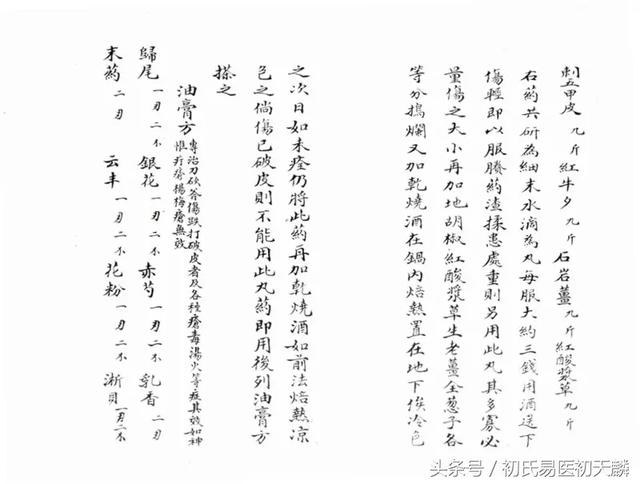 刺五甲皮 九斤 紅牛夕 九斤 石岩薑 九斤 紅酸漿草 九斤
右葯共研為細末水滴為丸每服大約三錢用酒送下
傷輕即以服賸葯渣揉患處重則另用此丸其多寡必
量傷之大小再加地胡椒紅酸漿草生老薑全葱子各
等分搗爛又加乾燒酒在鍋內焙熱置在地下俟冷色
之次日如未痊仍將此葯再加乾燒酒如前法焙熱凉
色之倘傷已破皮則不能用此丸葯即用後列油膏方
搽之
油膏方
專治刀砍斧傷跌打破皮者及各種瘡毒湯火等症其效如神
惟疔瘡楊梅瘡無效
歸尾 一刃二不 銀花 一刃二不 赤芍 一刃二不 乳香 二刃
末葯 二刃 云丰 一刃二不 花粉 一刃二不 淅貝 一刃二不
头条号/初氏易医初天麟